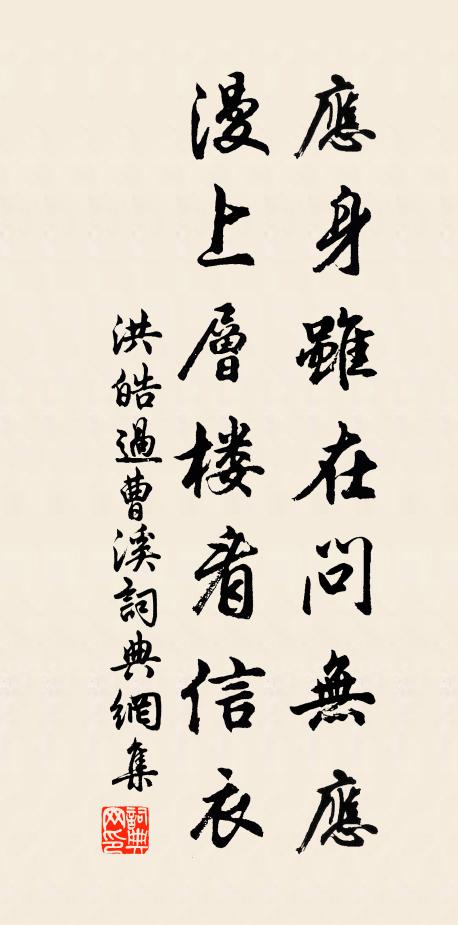 應身雖在問無應
漫上層楼看信衣
洪皓過曹溪詞典網集
詞典网印